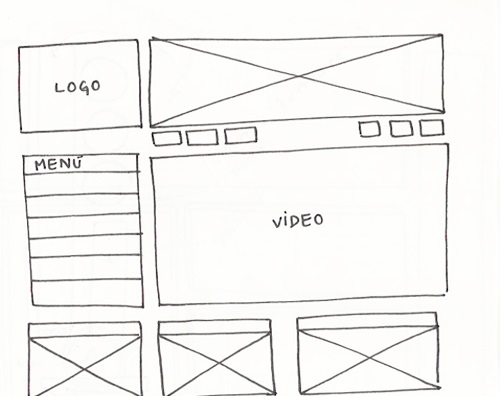 LOGO
MENÚ
VIDEO